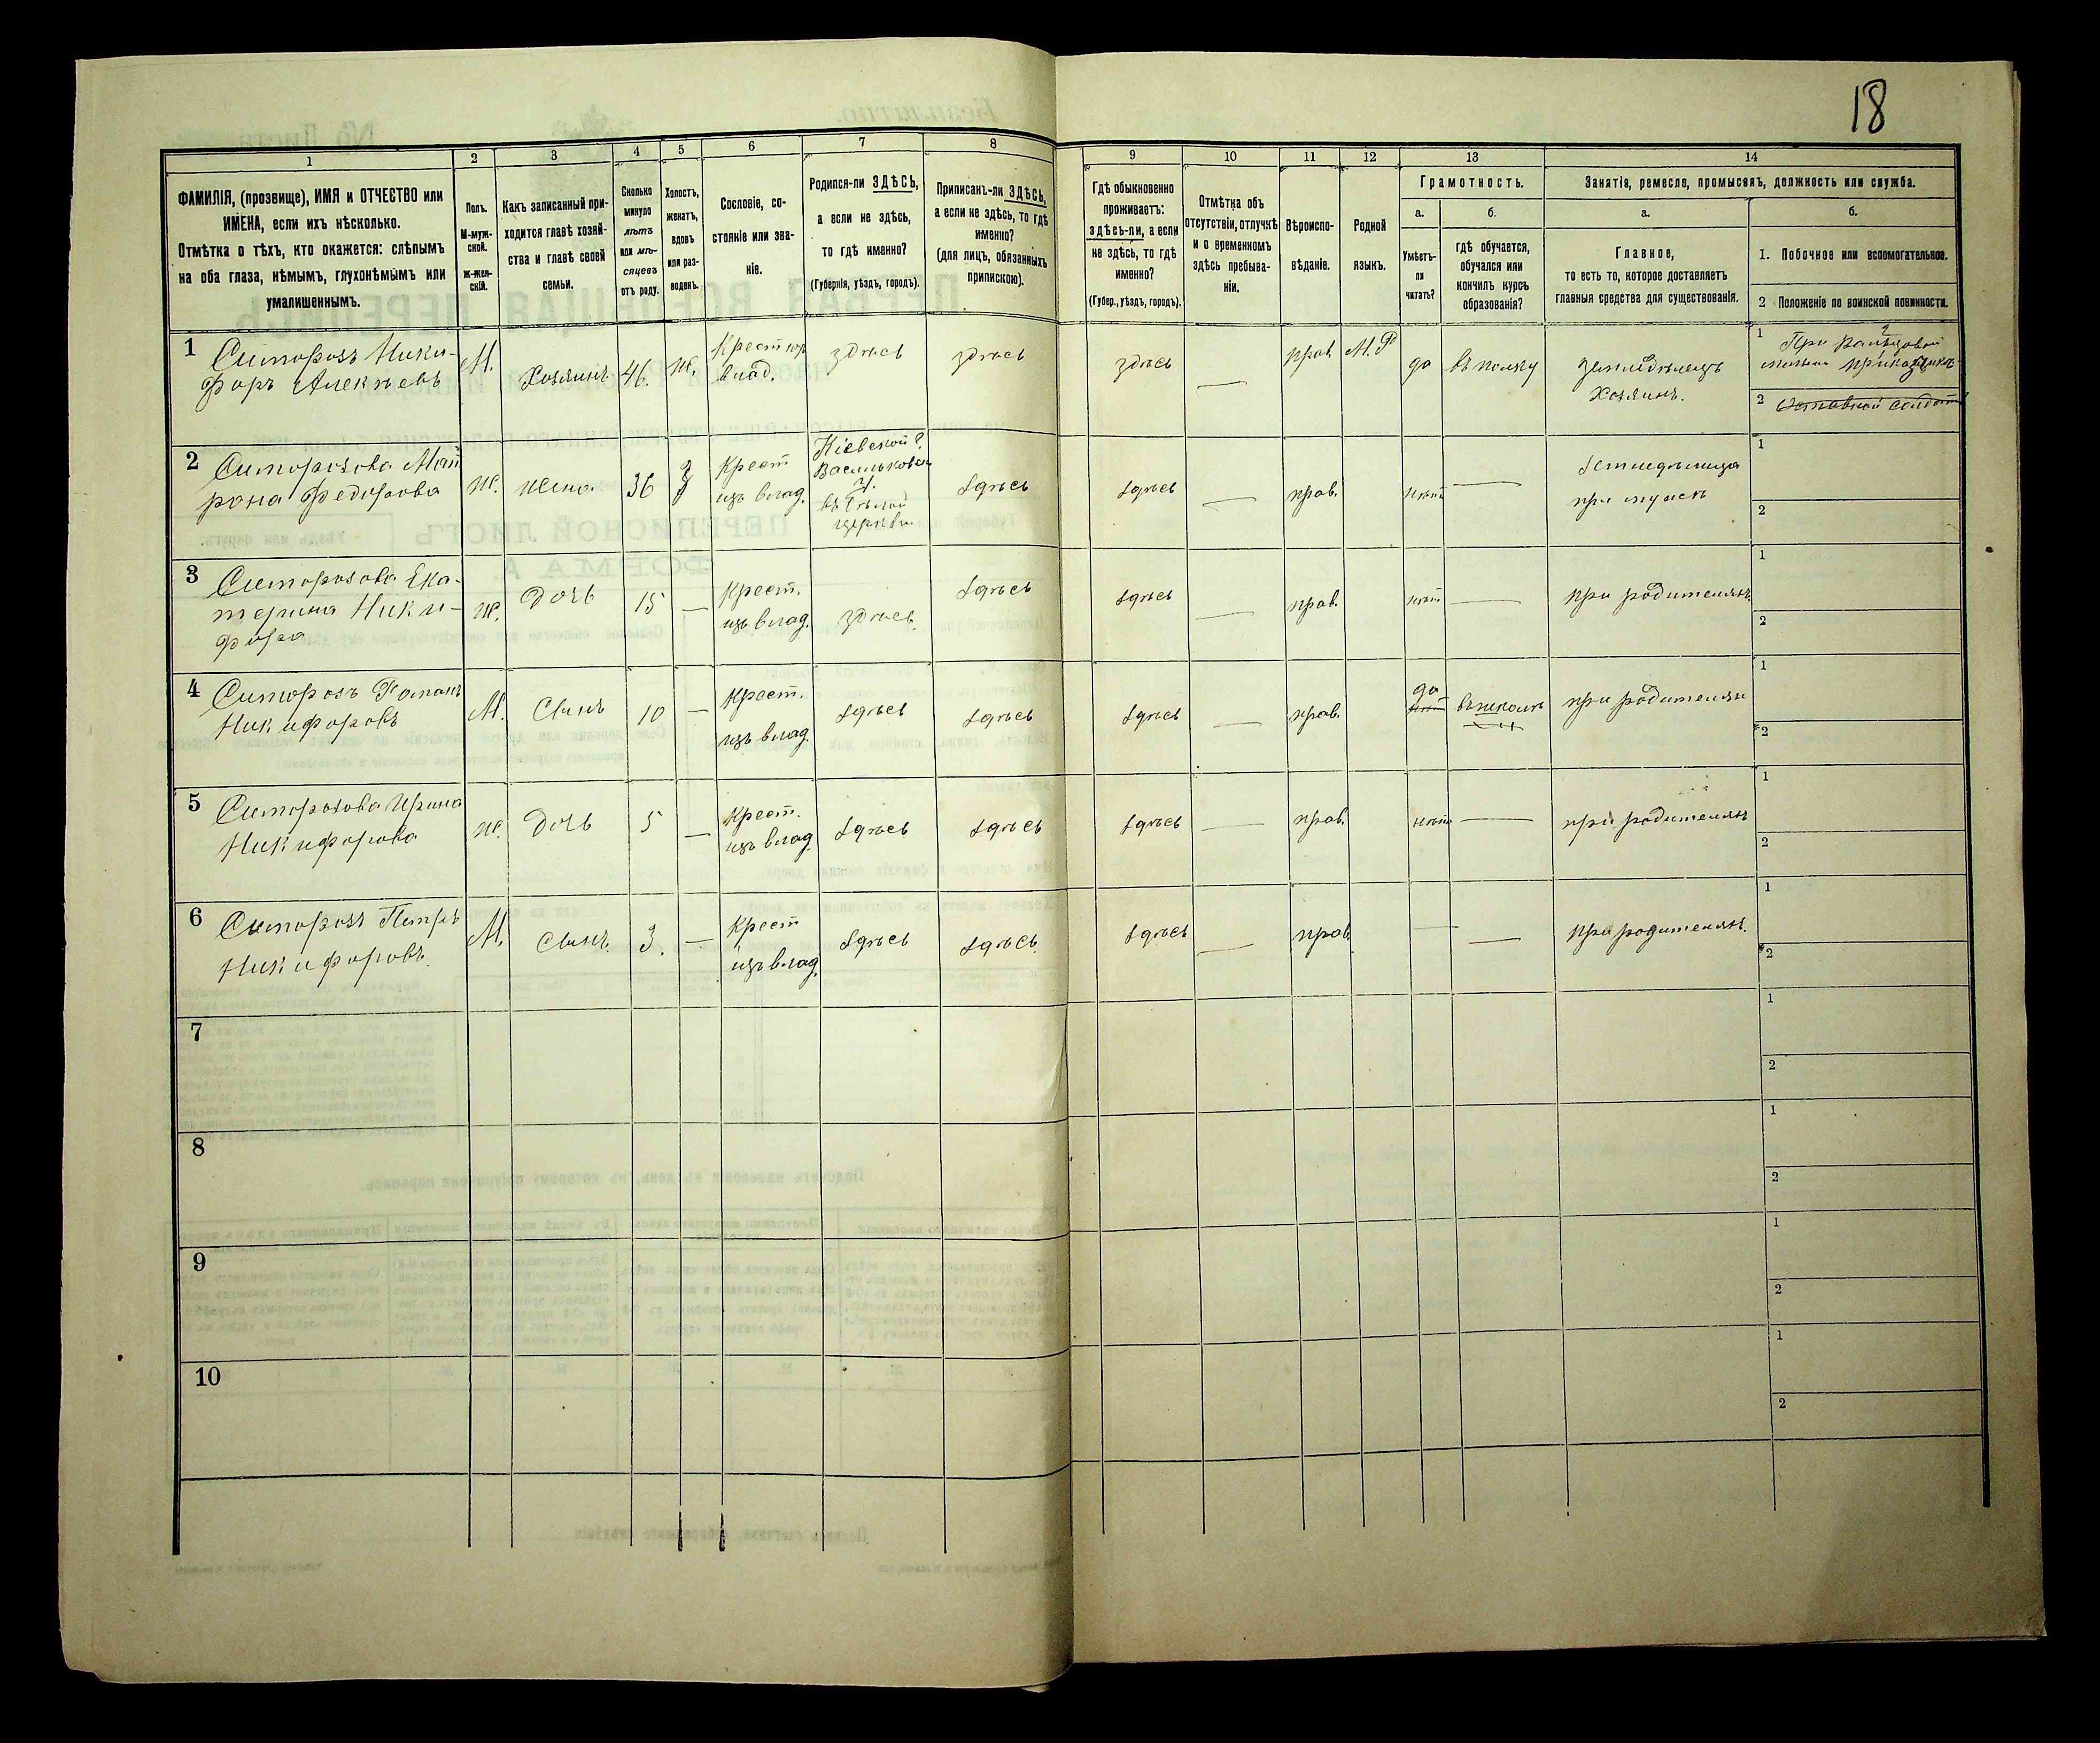 18
1
2
3
4
5
6
7
8
9
10
11
12
13
14
ФАМИЛІЯ, (прозвище), ИМЯ и ОТЧЕСТВО или
ИМЕНА, если ихъ нѣсколько.
Отмѣтка о тѣхъ, кто окажется: слѣпымъ
на оба глаза, нѣмымъ, глухонѣмымъ или
умалишеннымъ.
Полъ.
М-муж-
ской.
ж-жен-
скій.
Какъ записанный при-
ходится главѣ хозяй-
ства и главѣ своей
семьи.
Сколько
минуло
лѣтъ
или мѣ-
сяцевъ
отъ роду.
Холостъ,
женатъ,
вдовъ
или раз-
веденъ.
Сословіе, со-
стояніе или зва-
ніе.
Родился-ли ЗДѢСЬ,
а если не здѣсь,
то гдѣ именно?
(Губернія, уѣздъ, городъ).
Приписанъ-ли ЗДѢСЬ,
а если не здѣсь, то гдѣ
именно?
(для лицъ, обязанныхъ
припискою).
Гдѣ обыкновенно
проживаетъ:
здѣсь-ли, а если
не здѣсь, то гдѣ
именно?
(Губер., уѣздъ, городъ).
Отмѣтка объ
отсутствіи, отлучкѣ
и о временномъ
здѣсь пребыва-
ніи.
Вѣроиспо-
вѣданіе.
Родной
языкъ.
Грамотность.
а.
Умѣетъ-
ли
читать?
б.
гдѣ обучается,
обучался или
кончилъ курсъ
образованія?
Занятія, ремесло, промыселъ, должность или служба.
а.
Главное,
то есть то, которое доставляетъ
главныя средства для существованія.
б.
1. Побочное или вспомогательное.
2 Положеніе по воинской повинности.
1 Ситорозъ Ники-
форъ Алексѣевъ
М.
Хозяинъ
46.
ж.
Крест
влад.
здѣсь
здѣсь
здѣсь
—
прав.
М. Р
да
въ полку
земледѣлецъ
Хозяинъ.
1 При
2
2 Ситорозова Мат
рона Федорова
ж.
жена
36
З
Крест
изъ влад.
Кіевской г.
Васильковск
у.
въ Бѣлой
церкви.
здѣсь
здѣсь
—
прав.
нѣтъ
—
при мужѣ
1
2
3 Ситорозова Ека-
терина Ники-
фора
ж.
Дочь
15
—
Крест.
изъ влад.
здѣсь.
здѣсь
здѣсь
—
прав.
нѣтъ
—
при родителяхъ
1
2
4 Ситорозъ Романъ
Никифоровъ
М.
Сынъ
10
—
Крест.
изъ влад.
здѣсь
здѣсь
здѣсь
—
прав.
да
нѣтъ
въ школѣ
при родителях
1
2
5 Ситорозова Ирина
Никифорова
ж.
Дочь
5
—
Крест.
изъ влад.
здѣсь
здѣсь
здѣсь
—
прав.
нѣтъ
—
при родителяхъ
1
2
6 Ситорозъ Петръ
Никифоровъ.
М.
Сынъ
3.
—
Крест
изъ влад.
здѣсь
здѣсь.
здѣсь
—
прав.
—
—
при родителяхъ.
1
2
7
1
2
8
1
2
9
1
2
10
1
2